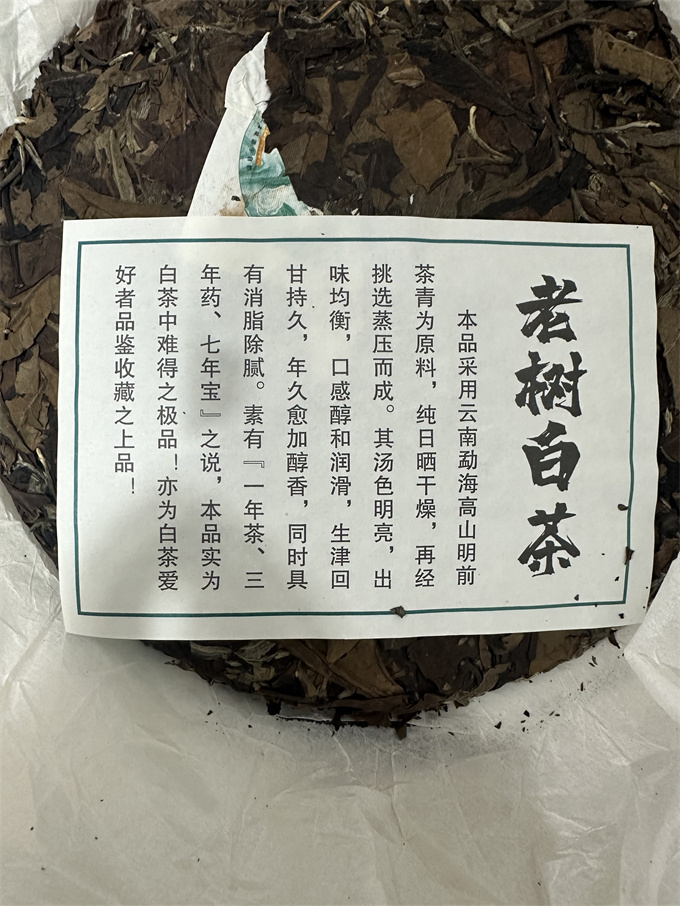 老树白茶
本品采用云南勐海高山明前
茶青为原料，纯日晒干燥，再经
挑选蒸压而成。其汤色明亮，出
味均衡，口感醇和润滑，生津回
甘持久，年久愈加醇香，同时具
有消脂除腻。素有『一年茶、三
年药、七年宝』之说，本品实为
白茶中难得之极品！亦为白茶爱
好者品鉴收藏之上品！